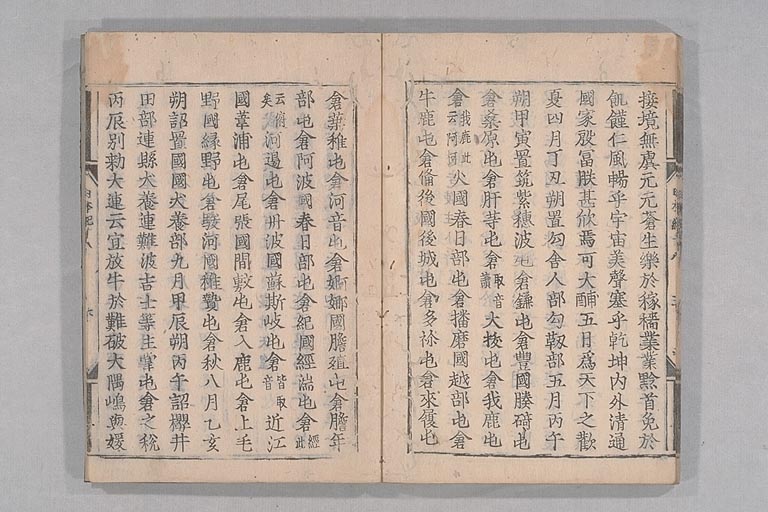 接境無虞元元蒼生樂於稼穡業業黔首免於
飢饉仁風暢乎宇宙美聲塞乎乾坤内外清通
國家殷富朕甚欣焉可大酺五日爲天下之歡
夏四月丁丑朔置勾舎人部勾靫部五月丙午
朔甲寅置筑紫穗波屯倉鎌屯倉豐國㬺碕屯
倉桑原屯倉肝等屯倉取音讀大拔屯倉我鹿屯
倉我鹿此云阿柯火國春日部屯倉播磨國越部屯倉
牛鹿屯倉備後國後城屯倉多祢屯倉來履屯
倉葉稚屯倉河音屯倉婀娜國膽殖屯倉膽年
部屯倉阿波國春日部屯倉紀國經湍屯倉經湍此
云俯世矣河邊屯倉丹波國蘇斯岐屯倉皆取音近江
國葦浦屯倉尾張國間敷屯倉入鹿屯倉上毛
野國緑野屯倉駿河國稚贄屯倉秋八月乙亥
朔詔置國國犬養部九月甲辰朔丙午詔櫻井
田部連縣犬養連難波吉士等主掌屯倉之税
丙辰別勅大連云宜放牛於難破大隅嶋與媛